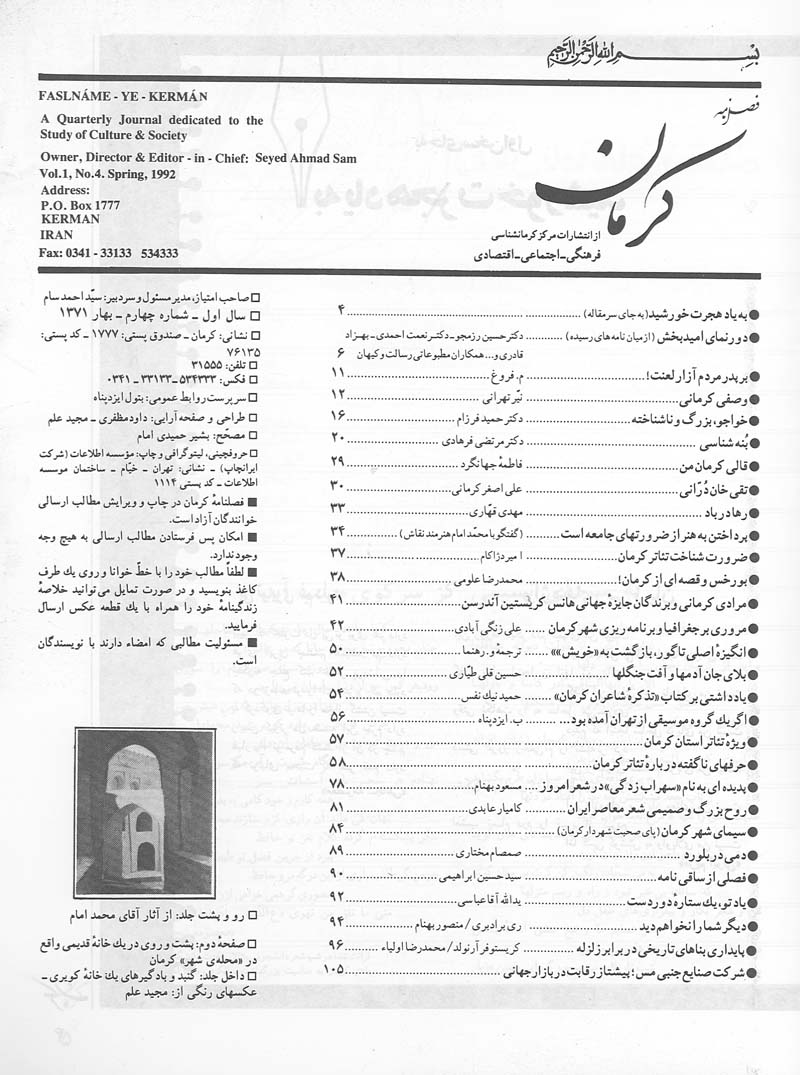 بسم الله الرحمن الرحیم
FASLNÁME - YE - KERMÁN
A Quarterly Journal dedicated to the
Study of Culture & Society
Owner, Director & Editor - in - Chief: Seyed Ahmad Sam
Vol.1, No.4. Spring, 1992
Address:
P.O. Box 1777
KERMAN
IRAN
Fax: 0341 - 33133 534333
فصلنامه
کرمان
از انتشارات مرکز کرمانشناسی
فرهنگی ـ اجتماعی ـ اقتصادی
● به یاد هجرت خورشید (به جای سرمقاله) ........ ۴
● دورنمای امیدبخش (از میان نامه‌های رسیده) ........ دکتر حسین رزمجو ـ دکتر نعمت احمدی ـ بهزاد
قادری و... همکاران مطبوعاتی رسالت و کیهان ۶
● بر پدر مردم آزار لعنت! ........ م. فروغ ........ ۱۱
● وصفی کرمانی ........ نیّر تهرانی ........ ۱۲
● خواجو، بزرگ و ناشناخته ........ دکتر حمید فرزام ........ ۱۶
● بُنه شناسی ........ دکتر مرتضی فرهادی ........ ۲۰
● قالی کرمان من ........ فاطمهٔ جهانگرد ........ ۲۹
● تقی خان دُرّانی ........ علی اصغر کرمانی ........ ۳۰
● رها در باد ........ مهدی قهّاری ........ ۳۳
● پرداختن به هنر از ضرورتهای جامعه است ........ (گفتگو با محمّد امام هنرمند نقاش) ........ ۳۴
● ضرورت شناخت تئاتر کرمان ........ امیر دژاکام ........ ۳۷
● بورخس و قصه‌ای از کرمان! ........ محمدرضا علومی ........ ۳۸
● مرادی کرمانی و برندگان جایزهٔ جهانی هانس کریستین آندرسن ........ ۴۱
● مروری بر جغرافیا و برنامه ریزی شهر کرمان ...... علی زنگی آبادی ........ ۴۲
● انگیزهٔ اصلی تاگور، بازگشت به «خویش» ........ ترجمهٔ و. رهنما ........ ۵۰
● بلای جان آدمها و آفت جنگلها ........ حسین قلی طیّاری ........ ۵۲
● یادداشتی بر کتاب «تذکرهٔ شاعران کرمان» ........ حمید نیك نفس ........ ۵۴
● اگر یك گروه موسیقی از تهران آمده بود... ........ ب. ایزدپناه ........ ۵۶
● ویژهٔ تئاتر استان کرمان ........ ۵۷
● حرفهای ناگفته دربارهٔ تئاتر کرمان ........ ۵۸
● پدیده‌ای به نام «سهراب زدگی» در شعر امروز .... مسعود بهنام ........ ۷۸
● روح بزرگ و صمیمی شعر معاصر ایران ........ کامیار عابدی ........ ۸۱
● سیمای شهر کرمان (پای صحبت شهردار کرمان) ........ ۸۴
● دمی در بلورد ........ صمصام مختاری ........ ۸۹
● فصلی از ساقی نامه ........ سید حسین ابراهیمی ........ ۹۰
● یاد تو، یك ستارهٔ دوردست ........ یدالله آقاعباسی ........ ۹۲
● دیگر شما را نخواهم دید ........ ری برادبری / منصور بهنام ........ ۹۴
● پایداری بناهای تاریخی در برابر زلزله ........ کریستوفر آرنولد / محمدرضا اولیاء ........ ۹۶
● شرکت صنایع جنبی مس؛ پیشتاز رقابت در بازار جهانی ........ ۱۰۵
□ صاحب امتیاز، مدیر مسئول و سردبیر: سیّد احمد سام
□ سال اول ـ شماره چهارم ـ بهار ۱۳۷۱
□ نشانی: کرمان ـ صندوق پستی: ۱۷۷۷ ـ کد پستی:
۷۶۱۳۵
□ تلفن: ۳۱۵۵۵
□ فکس: ۵۳۴۳۳۳ ـ ۳۳۱۳۳ ـ ۰۳۴۱
□ سرپرست روابط عمومی: بتول ایزدپناه
□ طراحی و صفحه آرایی: داود مظفری ـ مجید علم
□ مصحّح: بشیر حمیدی امام
□ حروفچینی، لیتوگرافی و چاپ: مؤسسه اطلاعات (شرکت
ایرانچاپ) ـ نشانی: تهران ـ خیّام ـ ساختمان موسسه
اطلاعات ـ کد پستی ۱۱۱۴
■ فصلنامهٔ کرمان در چاپ و ویرایش مطالب ارسالی
خوانندگان آزاد است.
■ امکان پس فرستادن مطالب ارسالی به هیچ وجه
وجود ندارد.
■ لطفاً مطالب خود را با خطّ خوانا و روی یك طرف
کاغذ بنویسید و در صورت تمایل می‌توانید خلاصهٔ
زندگینامهٔ خود را همراه با یك قطعه عکس ارسال
فرمایید.
■ مسئولیت مطالبی که امضاء دارند با نویسندگان
است.
□ رو و پشت جلد: از آثار آقای محمد امام
□ صفحهٔ دوم: پشت و روی در یك خانهٔ قدیمی واقع
در «محله‌ی شهر» کرمان
□ داخل جلد: گنبد و بادگیرهای یك خانهٔ کویری ـ
عکسهای رنگی از: مجید علم